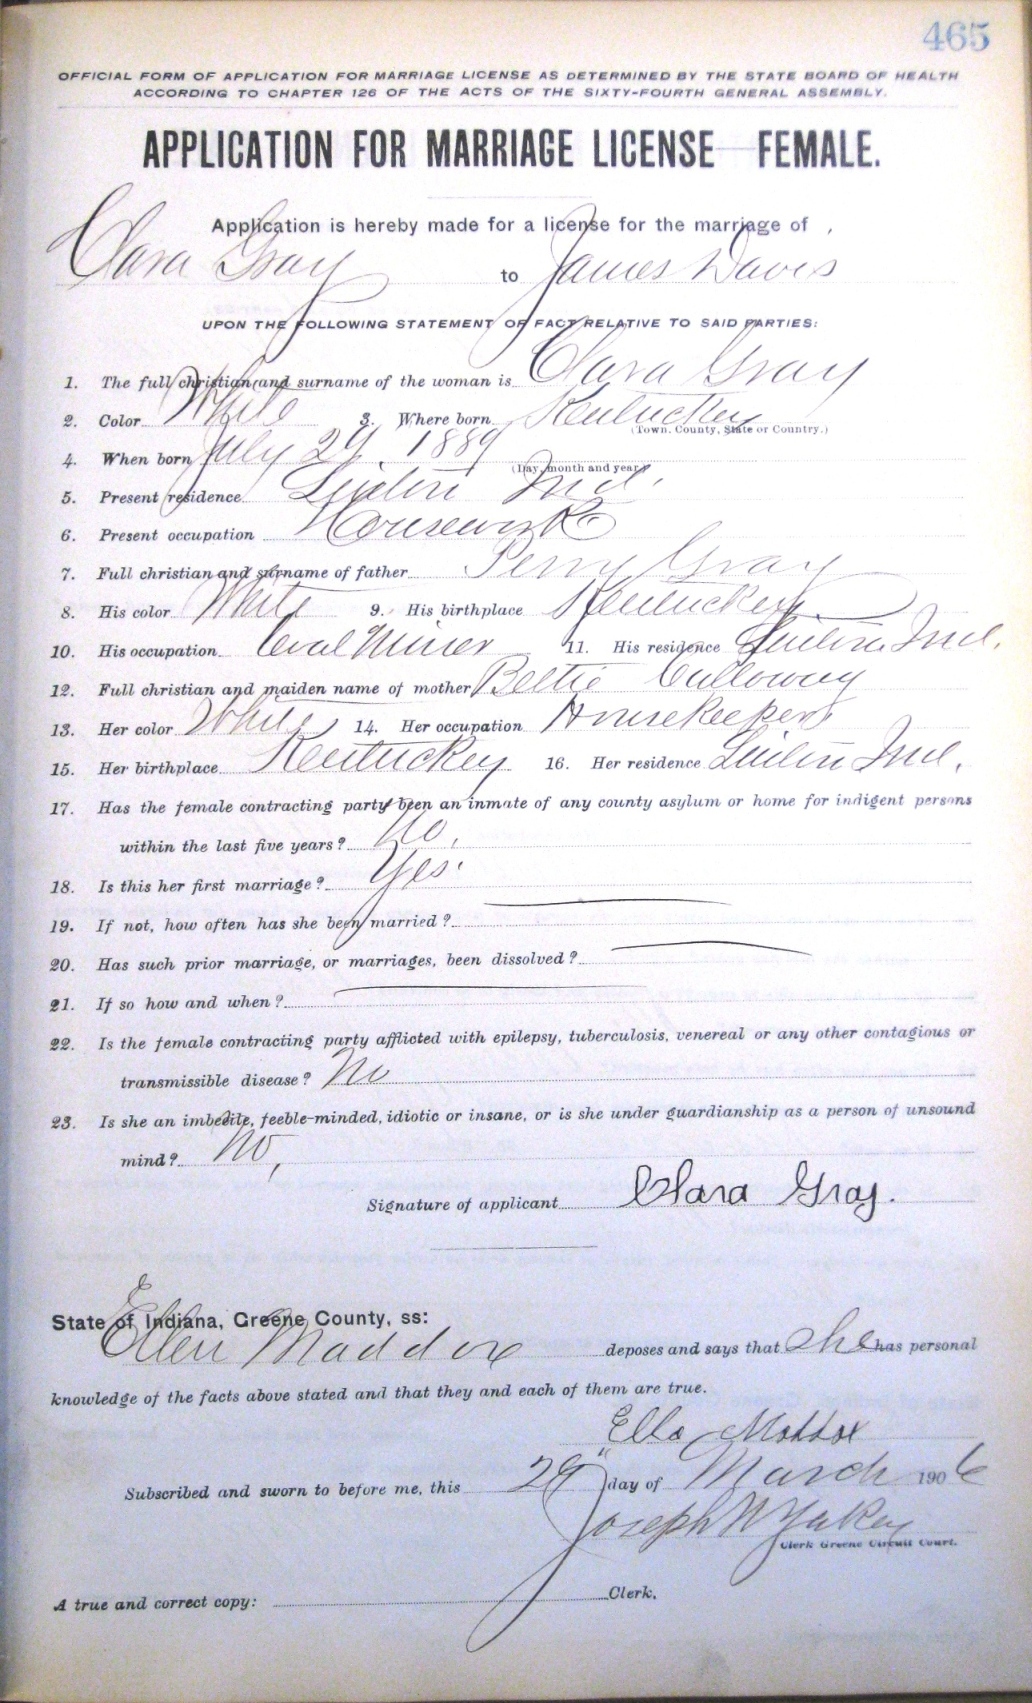 465
OFFICIAL FORM OF APPLICATION FOR MARRIAGE LICENSE AS DETERMINED BY THE STATE BOARD OF HEALTH
ACCORDING TO CHAPTER 126 OF THE ACTS OF THE SIXTY-FOURTH GENERAL ASSEMBLY.
APPLICATION FOR MARRIAGE LICENSE FEMALE.
Application is hereby made for a license for the marriage of
Clara Gray to James Davis
UPON THE FOLLOWING STATEMENT OF FACT RELATIVE TO SAID PARTIES:
1. The full christian and surname of the woman is Clara Gray
2. Color White 3. Where born Kentuckey
(Town, County, State or Country.)
4. When born July 29, 1889
(Day, month and year)
5. Present residence Ind.
6. Present occupation Housework
7. Full christian and surname of father Perry Gray
8. His color White 9. His birthplace Kentuckey
10. His occupation Coal Miner 11. His residence Ind.
12. Full christian and maiden name of mother Bettie Calloway
13. Her color White 14. Her occupation Housekeeper
15. Her birthplace Kentuckey 16. Her residence Ind.
17. Has the female contracting party been an inmate of any county asylum or home for indigent persons
within the last five years? No.
18. Is this her first marriage? Yes.
19. If not, how often has she been married?
20. Has such prior marriage, or marriages, been dissolved?
21. If so how and when?
22. Is the female contracting party afflicted with epilepsy, tuberculosis, venereal or any other contagious or
transmissible disease? No
23. Is she an imbecile, feeble-minded, idiotic or insane, or is she under guardianship as a person of unsound
mind? No,
Signature of applicant Clara Gray.
State of Indiana, Greene County, ss:
Ellen Maddox deposes and says that she has personal
knowledge of the facts above stated and that they and each of them are true.
Ella Maddox
Subscribed and sworn to before me, this 29" day of March 1906
Joseph W Yakey
Clerk Greene Circuit Court.
A true and correct copy: Clerk.